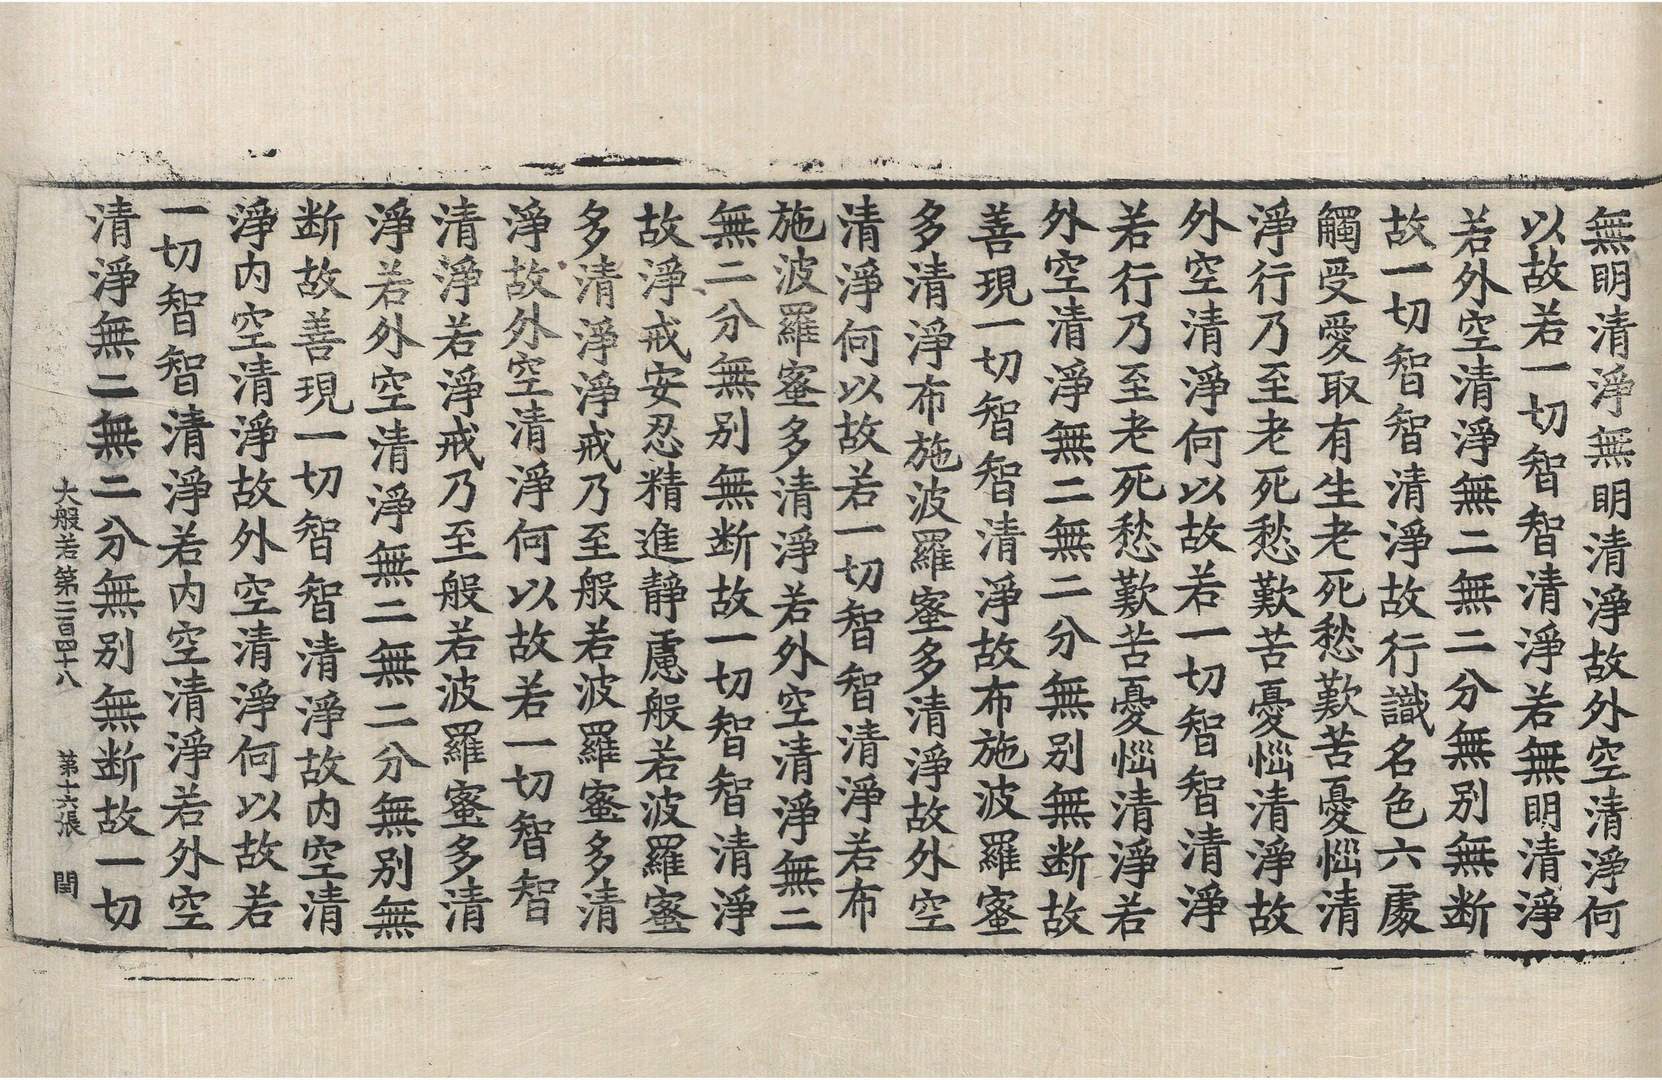 無明清淨無明清淨故外空清淨何
以故若一切智智清淨若無明清淨
若外空清淨無二無二分無別無断
故一切智智清淨故行識名色六處
觸受愛取有生老死愁歎苦憂惱清
淨行乃至老死愁歎苦憂惱清淨故
外空清淨何以故若一切智智清淨
若行乃至老死愁歎苦憂惱清淨若
外空清淨無二無二分無別無断故
善現一切智智清淨故布施波羅蜜
多清淨布施波羅蜜多清淨故外空
清淨何以故若一切智智清淨若布
施波羅蜜多清淨若外空清淨無二
無二分無別無断故一切智智清淨
故淨戒安忍精進靜慮般若波羅蜜
多清淨淨戒乃至般若波羅蜜多清
淨故外空清淨何以故若一切智智
清淨若淨戒乃至般若波羅蜜多清
淨若外空清淨無二無二分無別無
断故善現一切智智清淨故內空清
淨內空清淨故外空清淨何以故若
一切智智清淨若內空清淨若外空
清淨無二無二分無別無断故一切
大般若第二百四十八　第十六張　閏